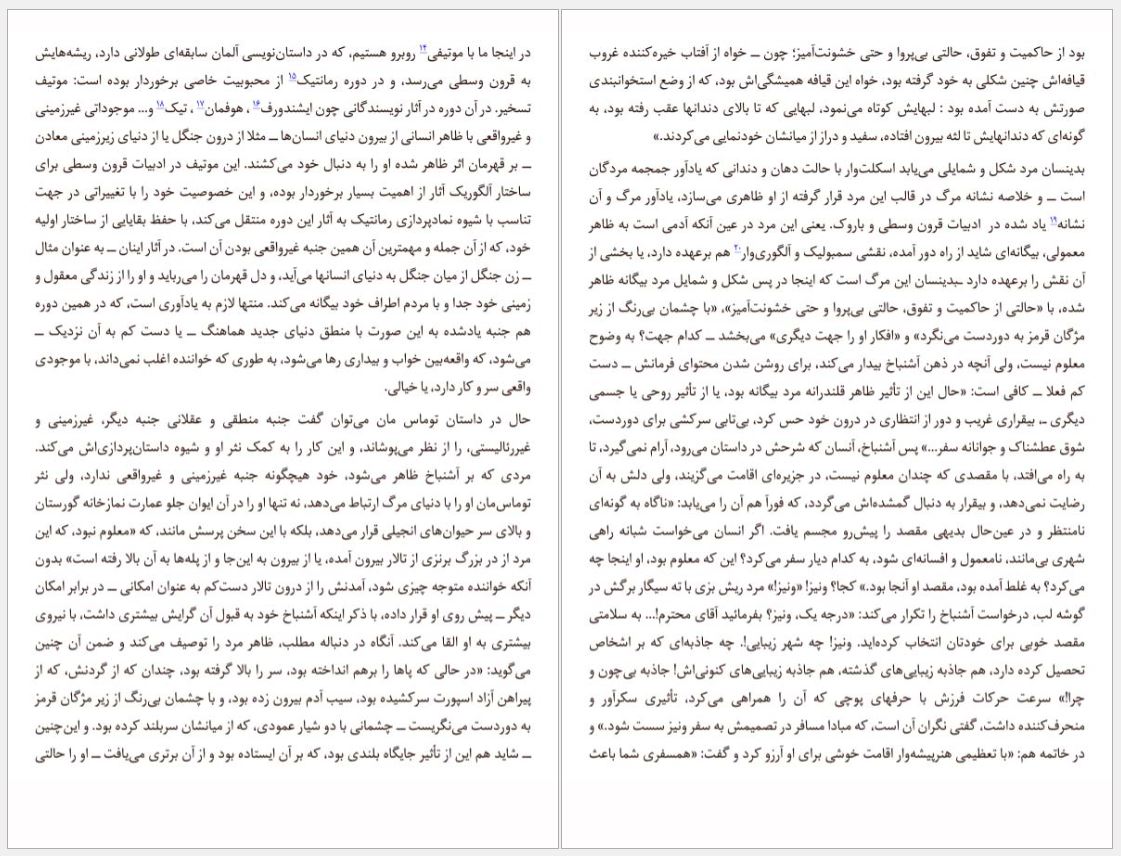 در اینجا ما با موتیفی۱۴ روبرو هستیم، که در داستان‌نویسی آلمان سابقه‌ای طولانی دارد، ریشه‌هایش
به قرون وسطی می‌رسد، و در دوره رمانتیک۱۵ از محبوبیت خاصی برخوردار بوده است: موتیف
تسخیر. در آن دوره در آثار نویسندگانی چون ایشندورف۱۶ ، هوفمان۱۷ ، تیک۱۸ و... موجوداتی غیرزمینی
و غیرواقعی با ظاهر انسانی از بیرون دنیای انسان‌ها ــ مثلا از درون جنگل یا از دنیای زیرزمینی معادن
ــ بر قهرمان اثر ظاهر شده او را به دنبال خود می‌کشند. این موتیف در ادبیات قرون وسطی برای
ساختار آلگوریک آثار از اهمیت بسیار برخوردار بوده، و این خصوصیت خود را با تغییراتی در جهت
تناسب با شیوه نمادپردازی رمانتیک به آثار این دوره منتقل می‌کند، با حفظ بقایایی از ساختار اولیه
خود، که از آن جمله و مهمترین آن همین جنبه غیرواقعی بودن آن است. در آثار اینان ــ به عنوان مثال
ــ زن جنگل از میان جنگل به دنیای انسانها می‌آید، و دل قهرمان را می‌رباید و او را از زندگی معقول و
زمینی خود جدا و با مردم اطراف خود بیگانه می‌کند. منتها لازم به یادآوری است، که در همین دوره
هم جنبه یادشده به این صورت با منطق دنیای جدید هماهنگ ــ یا دست کم به آن نزدیک ــ
می‌شود، که واقعه‌بین خواب و بیداری رها می‌شود، به طوری که خواننده اغلب نمی‌داند، با موجودی
واقعی سر و کار دارد، یا خیالی.
حال در داستان توماس مان می‌توان گفت جنبه منطقی و عقلانی جنبه دیگر، غیرزمینی و
غیررئالیستی، را از نظر می‌پوشاند، و این کار را به کمک نثر او و شیوه داستان‌پردازی‌اش می‌کند.
مردی که بر آشنباخ ظاهر می‌شود، خود هیچگونه جنبه غیرزمینی و غیرواقعی ندارد، ولی نثر
توماس‌مان او را با دنیای مرگ ارتباط می‌دهد، نه تنها او را در آن ایوان جلو عمارت نمازخانه گورستان
و بالای سر حیوان‌های انجیلی قرار می‌دهد، بلکه با این سخن پرسش مانند، که «معلوم نبود، که این
مرد از در بزرگ برنزی از تالار بیرون آمده، یا از بیرون به این‌جا و از پله‌ها به آن بالا رفته است» بدون
آنکه خواننده متوجه چیزی شود، آمدنش را از درون تالار دست‌کم به عنوان امکانی ــ در برابر امکان
دیگر ــ پیش روی او قرار داده، با ذکر اینکه آشنباخ خود به قبول آن گرایش بیشتری داشت، با نیروی
بیشتری به او القا می‌کند. آنگاه در دنباله مطلب، ظاهر مرد را توصیف می‌کند و ضمن آن چنین
می‌گوید: «در حالی که پاها را برهم انداخته بود، سر را بالا گرفته بود، چندان که از گردنش، که از
پیراهن آزاد اسپورت سرکشیده بود، سیب آدم بیرون زده بود، و با چشمان بی‌رنگ از زیر مژگان قرمز
به دوردست می‌نگریست ــ چشمانی با دو شیار عمودی، که از میانشان سربلند کرده بود. و این‌چنین
ــ شاید هم این از تأثیر جایگاه بلندی بود، که بر آن ایستاده بود و از آن برتری می‌یافت ــ او را حالتی
بود از حاکمیت و تفوق، حالتی بی‌پروا و حتی خشونت‌آمیز؛ چون ــ خواه از آفتاب خیره‌کننده غروب
قیافه‌اش چنین شکلی به خود گرفته بود، خواه این قیافه همیشگی‌اش بود، که از وضع استخوانبندی
صورتش به دست آمده بود : لبهایش کوتاه می‌نمود، لبهایی که تا بالای دندانها عقب رفته بود، به
گونه‌ای که دندانهایش تا لثه بیرون افتاده، سفید و دراز از میانشان خودنمایی می‌کردند.»
بدینسان مرد شکل و شمایلی می‌یابد اسکلت‌وار با حالت دهان و دندانی که یادآور جمجمه مردگان
است ــ و خلاصه نشانه مرگ در قالب این مرد قرار گرفته از او ظاهری می‌سازد، یادآور مرگ و آن
نشانه۱۹ یاد شده در ادبیات قرون وسطی و باروک. یعنی این مرد در عین آنکه آدمی است به ظاهر
معمولی، بیگانه‌ای شاید از راه دور آمده، نقشی سمبولیک و آلگوری‌وار۲۰ هم برعهده دارد، یا بخشی از
آن نقش را برعهده دارد ــ‌بدینسان این مرگ است که اینجا در پس شکل و شمایل مرد بیگانه ظاهر
شده، با «حالتی از حاکمیت و تفوق، حالتی بی‌پروا و حتی خشونت‌آمیز»، «با چشمان بی‌رنگ از زیر
مژگان قرمز به دوردست می‌نگرد» و «افکار او را جهت دیگری» می‌بخشد ــ کدام جهت؟ به وضوح
معلوم نیست، ولی آنچه در ذهن آشنباخ بیدار می‌کند، برای روشن شدن محتوای فرمانش ــ دست
کم فعلا ــ کافی است: «حال این از تأثیر ظاهر قلندرانه مرد بیگانه بود، یا از تأثیر روحی یا جسمی
دیگری ــ، بیقراری غریب و دور از انتظاری در درون خود حس کرد، بی‌تابی سرکشی برای دوردست،
شوق عطشناک و جوانانه سفر...» پس آشنباخ، آنسان که شرحش در داستان می‌رود، آرام نمی‌گیرد، تا
به راه می‌افتد، با مقصدی که چندان معلوم نیست، در جزیره‌ای اقامت می‌گزیند، ولی دلش به آن
رضایت نمی‌دهد، و بیقرار به دنبال گمشده‌اش می‌گردد، که فوراً هم آن را می‌یابد: «ناگاه به گونه‌ای
نامنتظر و در عین‌حال بدیهی مقصد را پیش‌رو مجسم یافت. اگر انسان می‌خواست شبانه راهی
شهری بی‌مانند، نامعمول و افسانه‌ای شود، به کدام دیار سفر می‌کرد؟ این که معلوم بود، او اینجا چه
می‌کرد؟ به غلط آمده بود، مقصد او آنجا بود.» کجا؟ ونیز! «ونیز!» مرد ریش بزی با ته سیگار برگش در
گوشه لب، درخواست آشنباخ را تکرار می‌کند: «درجه یک، ونیز؟ بفرمائید آقای محترم!... به سلامتی
مقصد خوبی برای خودتان انتخاب کرده‌اید. ونیز! چه شهر زیبایی!. چه جاذبه‌ای که بر اشخاص
تحصیل کرده دارد، هم جاذبه زیبایی‌های گذشته، هم جاذبه زیبایی‌های کنونی‌اش! جاذبه بی‌چون و
چرا!» سرعت حرکات فرزش با حرفهای پوچی که آن را همراهی می‌کرد، تأثیری سکرآور و
منحرف‌کننده داشت، گفتی نگران آن است، که مبادا مسافر در تصمیمش به سفر ونیز سست شود.» و
در خاتمه هم: «با تعظیمی هنرپیشه‌وار اقامت خوشی برای او آرزو کرد و گفت: «همسفری شما باعث